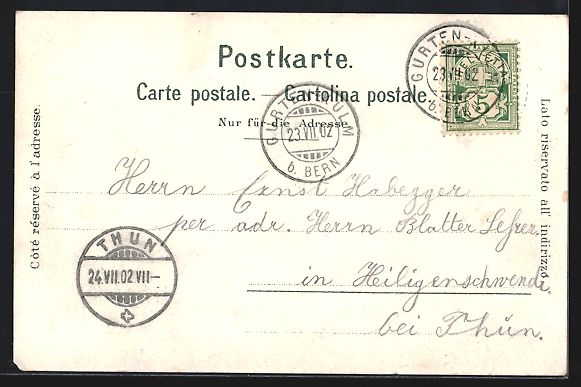 Postkarte.
Carte postale. — Cartolina postale.
Nur für die Adresse
GURTEN-KULM
23.VII.02
b. BERN
GURTEN-KULM
23.VII.02
b. BERN
HELVETIA
5
Côté réservé à l'adresse.
Lato riservato all' indirizzo.
Herrn Ernst Habegger
per adr. Herrn Blatter Lehrer
in Heiligenschwendi.
bei Thun.
THUN
24.VII.02 VII–